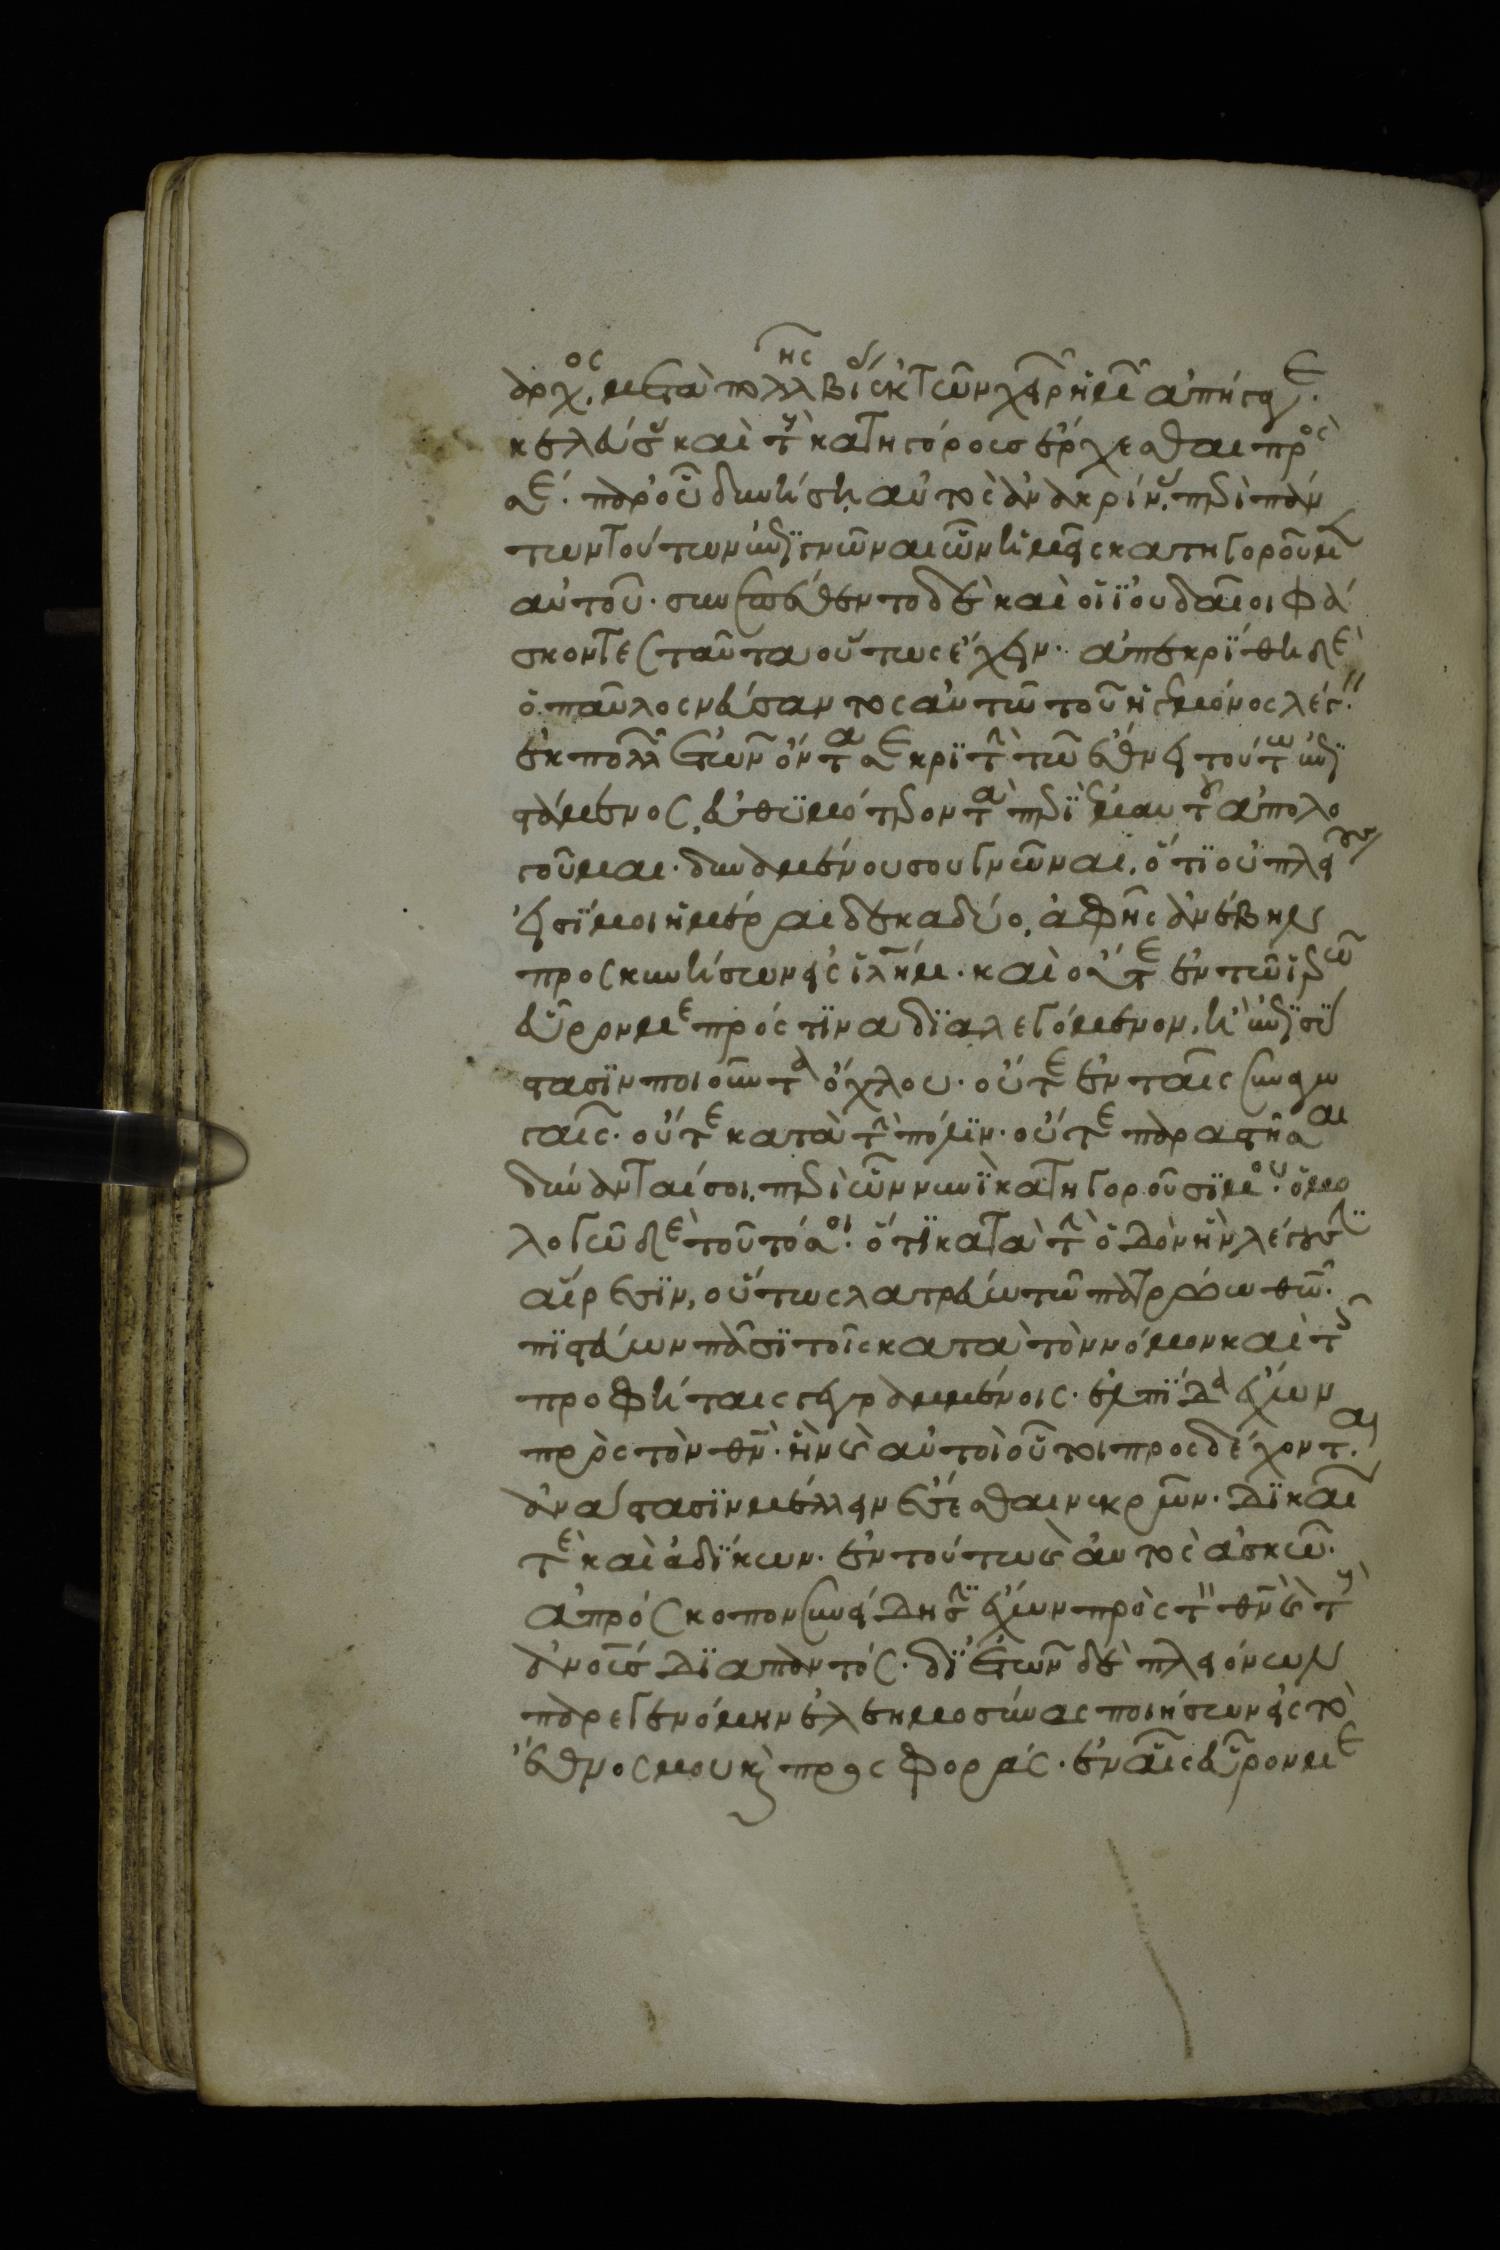 αρχος, μετὰ πολλῆς βίας ἐκ τῶν χειρῶν ἡμῶν ἀπήγαγε·
κελεύσας καὶ τοὺς κατηγόροις ἔρχεσθαι πρὸς
σέ· παρ' οὗ δυνήση αὐτὸς ἀνακρίνας, περὶ πάν
των τούτων ἐπιγνῶναι ὧν ἡμεῖς κατηγοροῦμεν
αὐτοῦ· συνεπέθεντο δὲ καὶ οἱ ϊουδαῖοι φά
σκοντες ταῦτα οὕτως ἔχειν· ἀπεκρίθη δὲ
ὁ παῦλος νεύσαντος αὐτῶ τοῦ ἡγεμόνος λέγειν·
ἐκ πολλῶν ἐτῶν ὄντα σε κριτὴν τῶ ἔθνει τούτω ἐπϊ
στάμενος, εὐθϋμότερον τὰ περὶ ἐμαυτοῦ ἀπολο
γοῦμαι· δυναμένου σου γνῶναι, ὅτϊ οὐ πλείους
εἰσΐ μοι ἡμέραι δεκαδύο, ἀφ' ἧς ἀνέβην
προσκυνήσων εἰς ϊλῆμ· καὶ οὔτε ἐν τῶ ἱερῶ
εὗρον με πρός τϊνα δϊαλεγόμενον, ἢ ἐπϊσύ
στασϊν ποιοῦντα ὄχλου· οὔτε ἐν ταῖς συναγω
γαῖς· οὔτε κατὰ τὴν πόλϊν· οὔτε παραστῆσαι
δύνανταί σοι, περὶ ὧν νυνῒ κατηγοροῦσΐ μου· ὁμο
λογῶ δὲ τοῦτό σοι· ὅτϊ κατὰ τὴν ὁδὸν ἣν λέγουσϊν
αἵρεσϊν, οὕτως λατρεύω τῶ πατρώω θῶ·
πϊστεύων πᾶσϊ τοῖς κατὰ τὸν νόμον καὶ τοῖς
προφήταις γεγραμμένοις· ἐλπΐδα ἔχων
πρὸς τὸν θν· ἣν καὶ αὐτοὶ οὗτοι προσδέχονται·
ἀνάστασϊν μέλλειν ἔσεσθαι νεκρῶν· δϊκαίων
τὲ καὶ ἀδΐκων· ἐν τούτω καὶ αὐτὸς ἀσκῶ·
ἀπρόσκοπον συνείδησϊν ἔχων πρὸς τὸν θν καὶ τοὺς
ἀνοῦς δϊαπαντός· δϊ' ἐτῶν δὲ πλειόνων
παρεγενόμην ἐλεημοσύνας ποιήσων εἰς τὸ
ἔθνος μου καὶ προσφοράς· ἐν αἷς εὗρον με